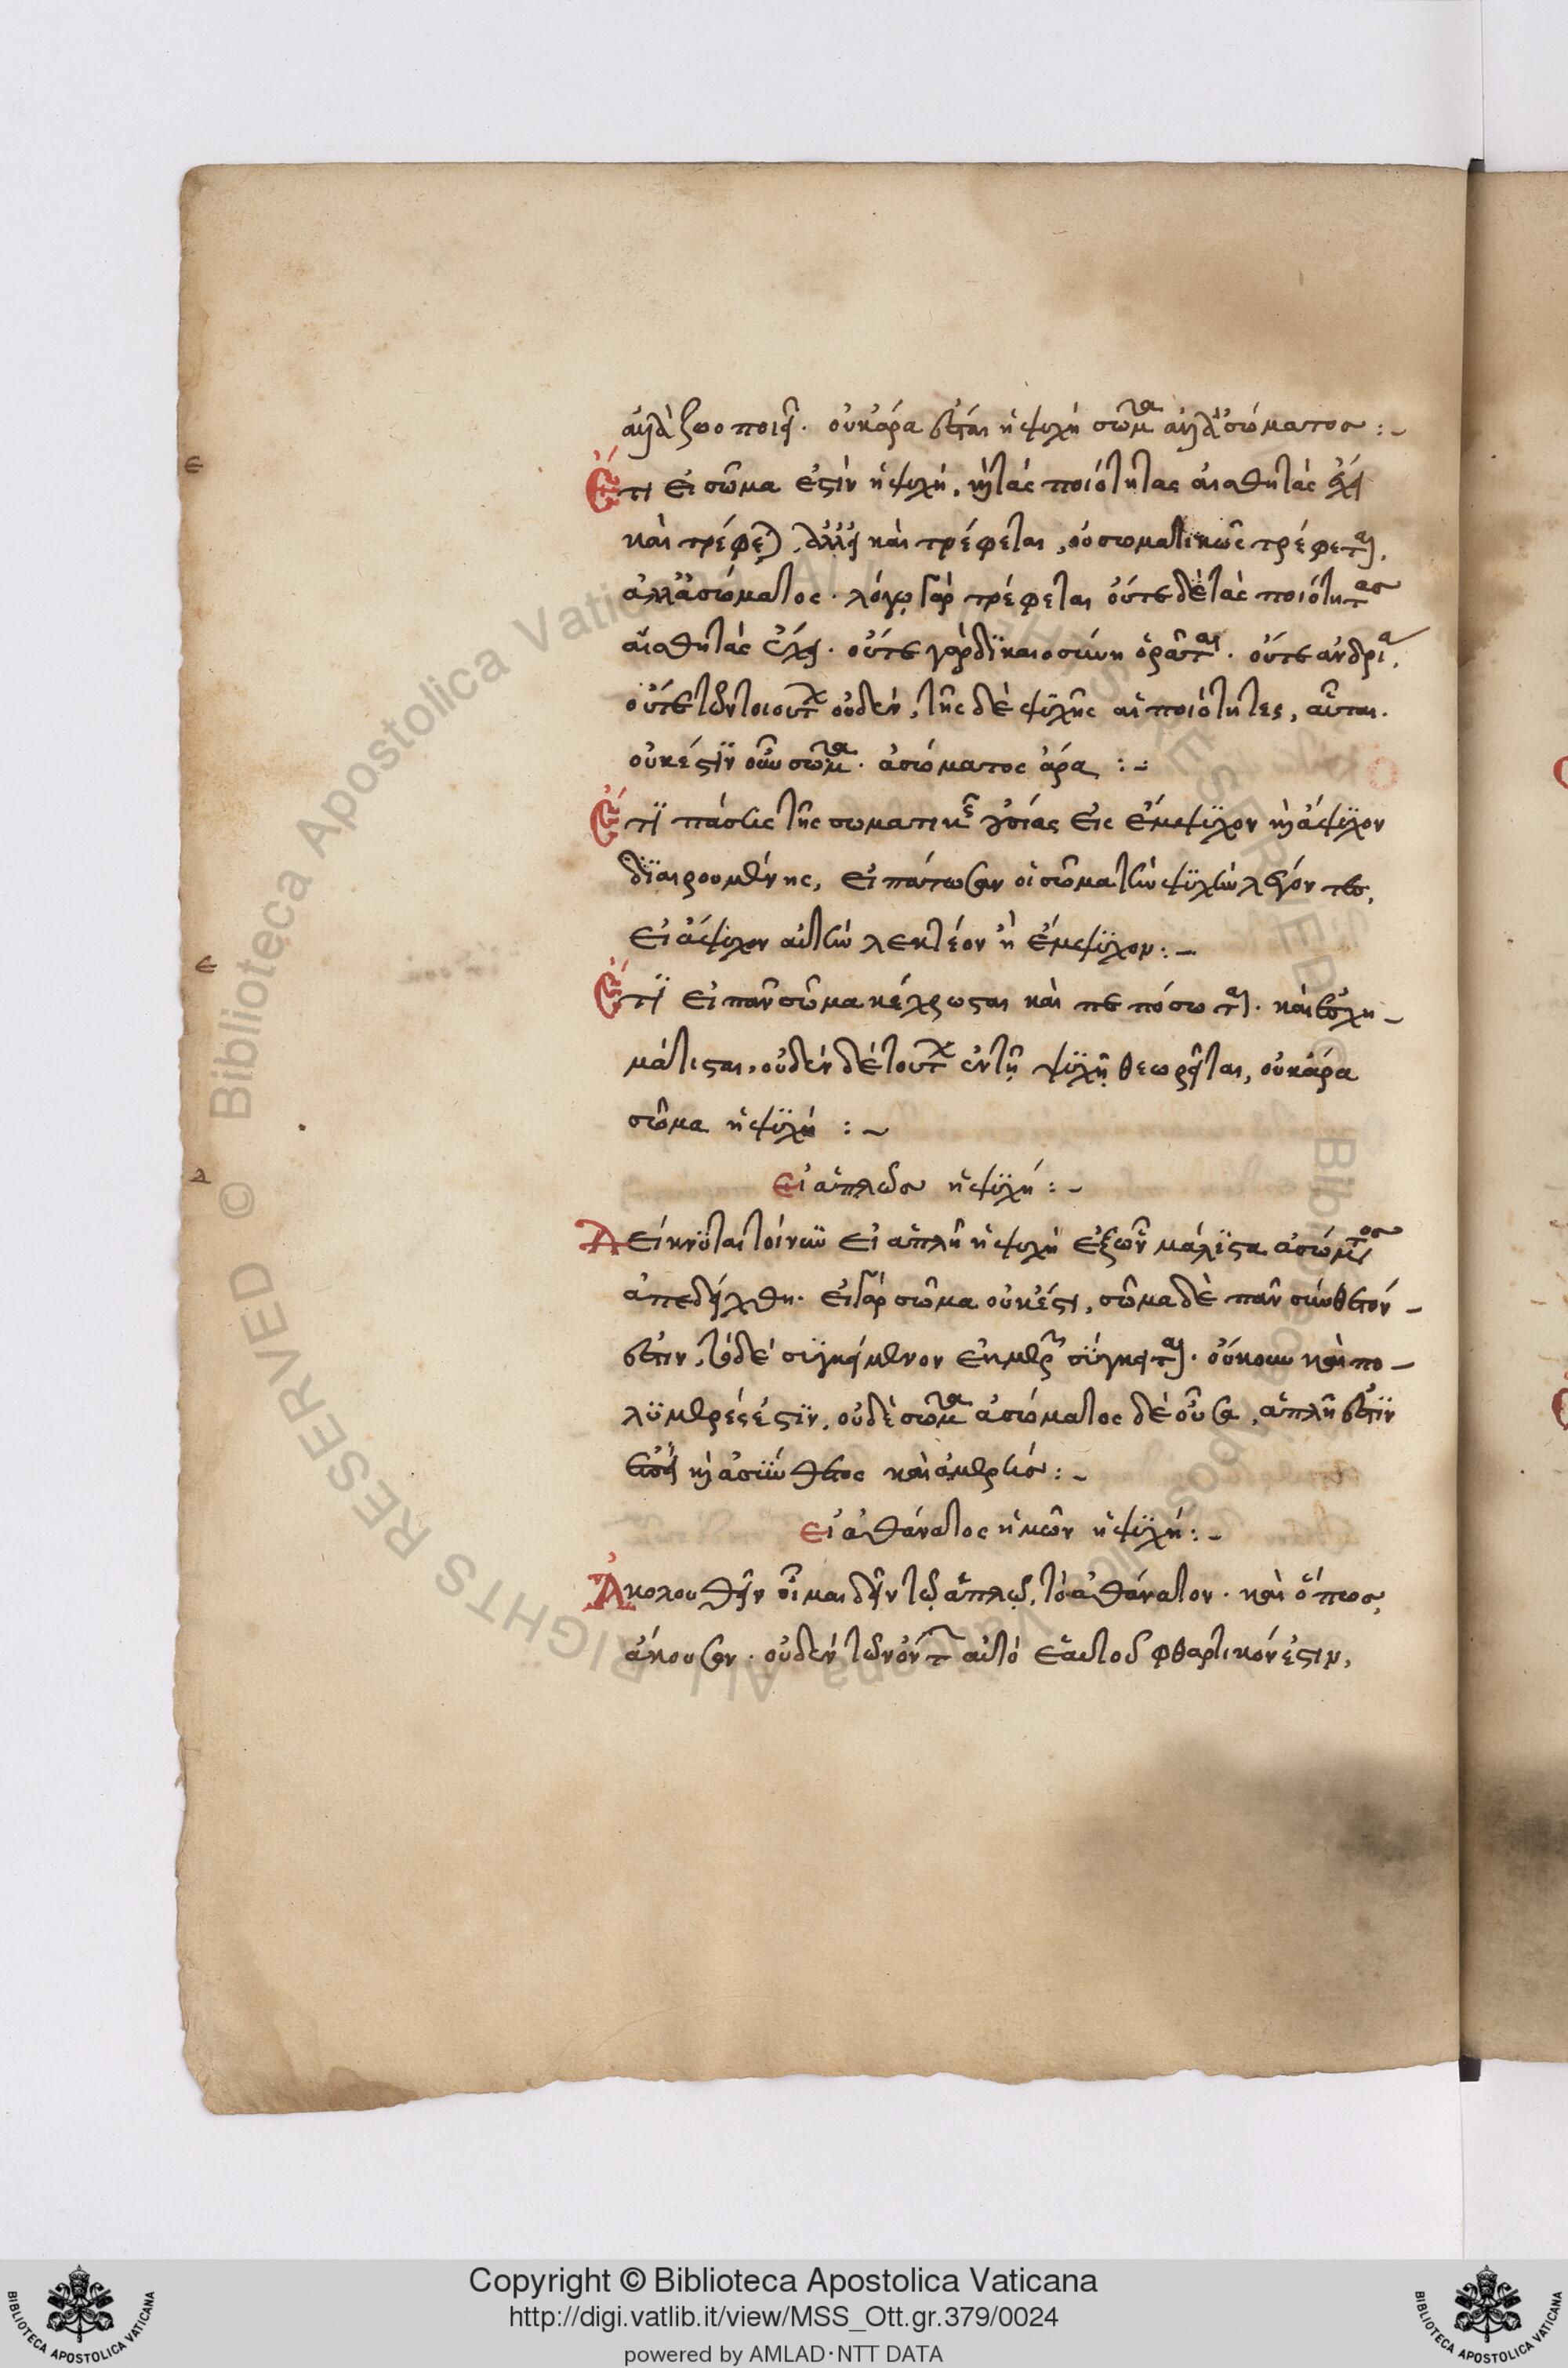 ἀλλὰ ζωοποιεῖ. οὐκ ἄρα ἔσται ἡ ψυχὴ σῶμα ἀλλ' ἀσώματος :-
Ἔτι εἰ σῶμα ἐστὶν ἡ ψυχή, καὶ τὰς ποιότητας αἰσθητὰς ἔχει
καὶ τρέφεται, ἀλλ' εἰ καὶ τρέφεται, οὐ σωματικῶς τρέφεται,
ἀλλ' ἀσώματος. λόγῳ γὰρ τρέφεται οὔτε δὲ τὰς ποιότητας
αἰσθητὰς ἔχει. οὔτε γὰρ δϊκαιοσύνη ὁρᾶται. οὔτε ἀνδρία,
οὔτε τῶν τοιούτων οὐδέν, τῆς δὲ ψϋχῆς αἱ ποιότητες, αὗται.
οὐκ ἔστϊν οὖν σῶμα. ἀσώματος ἄρα :-
Ἔτϊ πάσης τῆς σωματικῆς οὐσίας εἰς ἔμψϋχον καὶ ἄψϋχον
δϊαιρουμένης, εἰπάτωσαν οἱ σῶμα τὴν ψϋχὴν λέγοντες,
εἰ ἄψϋχον αὐτὴν λεκτέον ἢ ἔμψϋχον :-
Ἔτϊ εἰ πᾶν σῶμα κέχρωσται καὶ πεπόσωται. καὶ ἐσχη-
μάτισται, οὐδὲν δὲ τούτων ἐν τῇ ψϋχῇ θεωρεῖται, οὐκ ἄρα
σῶμα ἡ ψϋχή :-
εἰ ἁπλῶσ ἡ ψϋχή :-
Δείκνϋται τοίνϋν εἰ ἁπλῆ ἡ ψυχὴ ἐξ ὧν μάλϊστα ἀσώματος
ἀπεδείχθη. εἰ γὰρ σῶμα οὐκ ἔστι, σῶμα δὲ πᾶν σύνθετόν-
ἐστιν, τὸ δὲ σϋγκείμενον ἐκ μερῶν σύγκειται. οὔκουν καὶ πο-
λϋμερές ἐστϊν. οὐδὲ σῶμα ἀσώματος δὲ οὖσα, ἁπλῆ ἐστϊν
καὶ ἀσϋνθετος καὶ ἀμερήσ :-
εἰ ἀθάνατος ἡμῶν ἡ ψϋχή :-
Ἀκολουθεῖν οἶμαι δεῖν τῷ ἁπλῷ, τὸ ἀθάνατον. καὶ ὅπωσ,
ἄκουσον. οὐδὲν τῶν ὄντων αὐτὸ ἑαυτοῦ φθαρτικόν ἐστιν,
ε
ε
λ
Copyright © Biblioteca Apostolica Vaticana
http://digi.vatlib.it/view/MSS_Ott.gr.379/0024
powered by AMLAD·NTT DATA